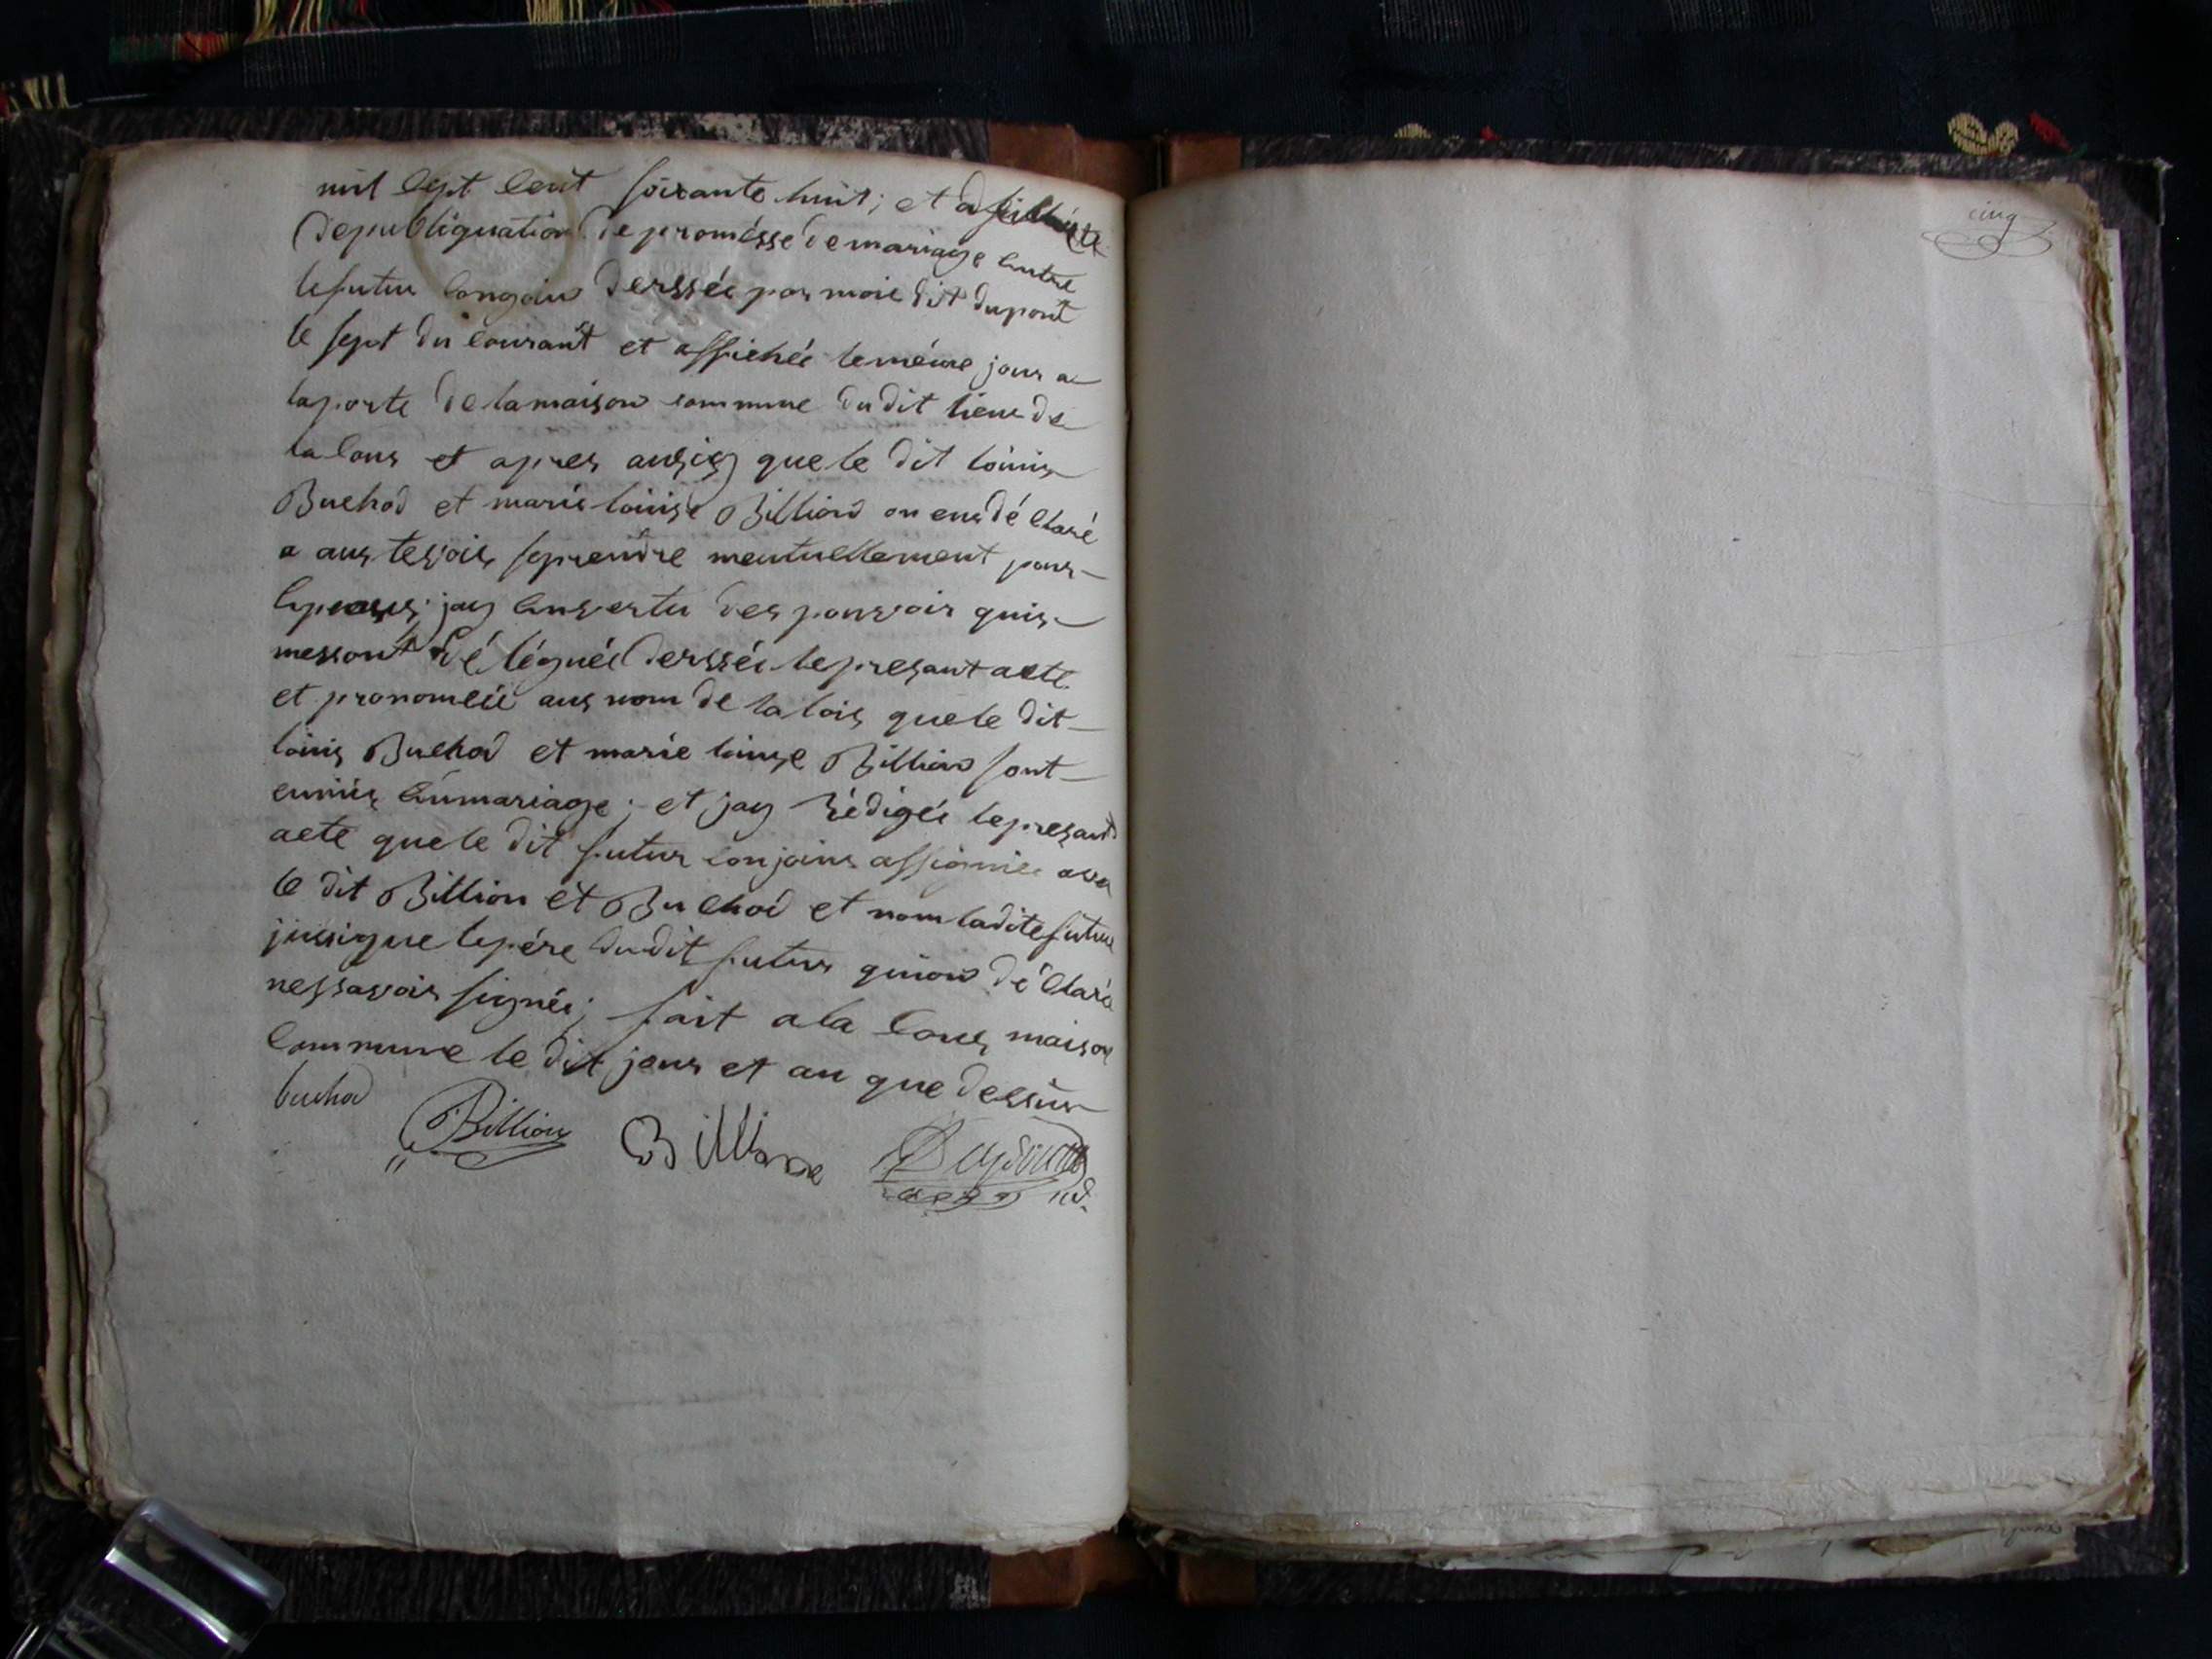 mil Cept Cent soixante huit; et a
de publiquation de promésse de mariage Entre
le futur Congoin derssée par moie dit dupont
le sept du Courant et affichée le méme jour a
la porte de la maison commune du dit lieu de
la Cous et apres ausis que le dit louis
Buchod et marie louise Billion on eus dé Claré
a aus tesvois se prendre meutuellement pour
Epeous; jay En vertu des pouvoir quis
messont déléguée derssée le presant acte
et pronomcée aus nom de la lois que le dit
louis Buchod et marie louise Billion sont
eunies En mariage; et jay Rédigée le presant
acte que le dit futur Conjoins assignée avec
le dit Billion et Buchod et nom la dite future
jusique le pére du dit futur quion dé Claré
nessavoir signée; fait a la Cous maison
Commune le dit jour et an que dessus
buchod Billion Billion Dupont
cinq